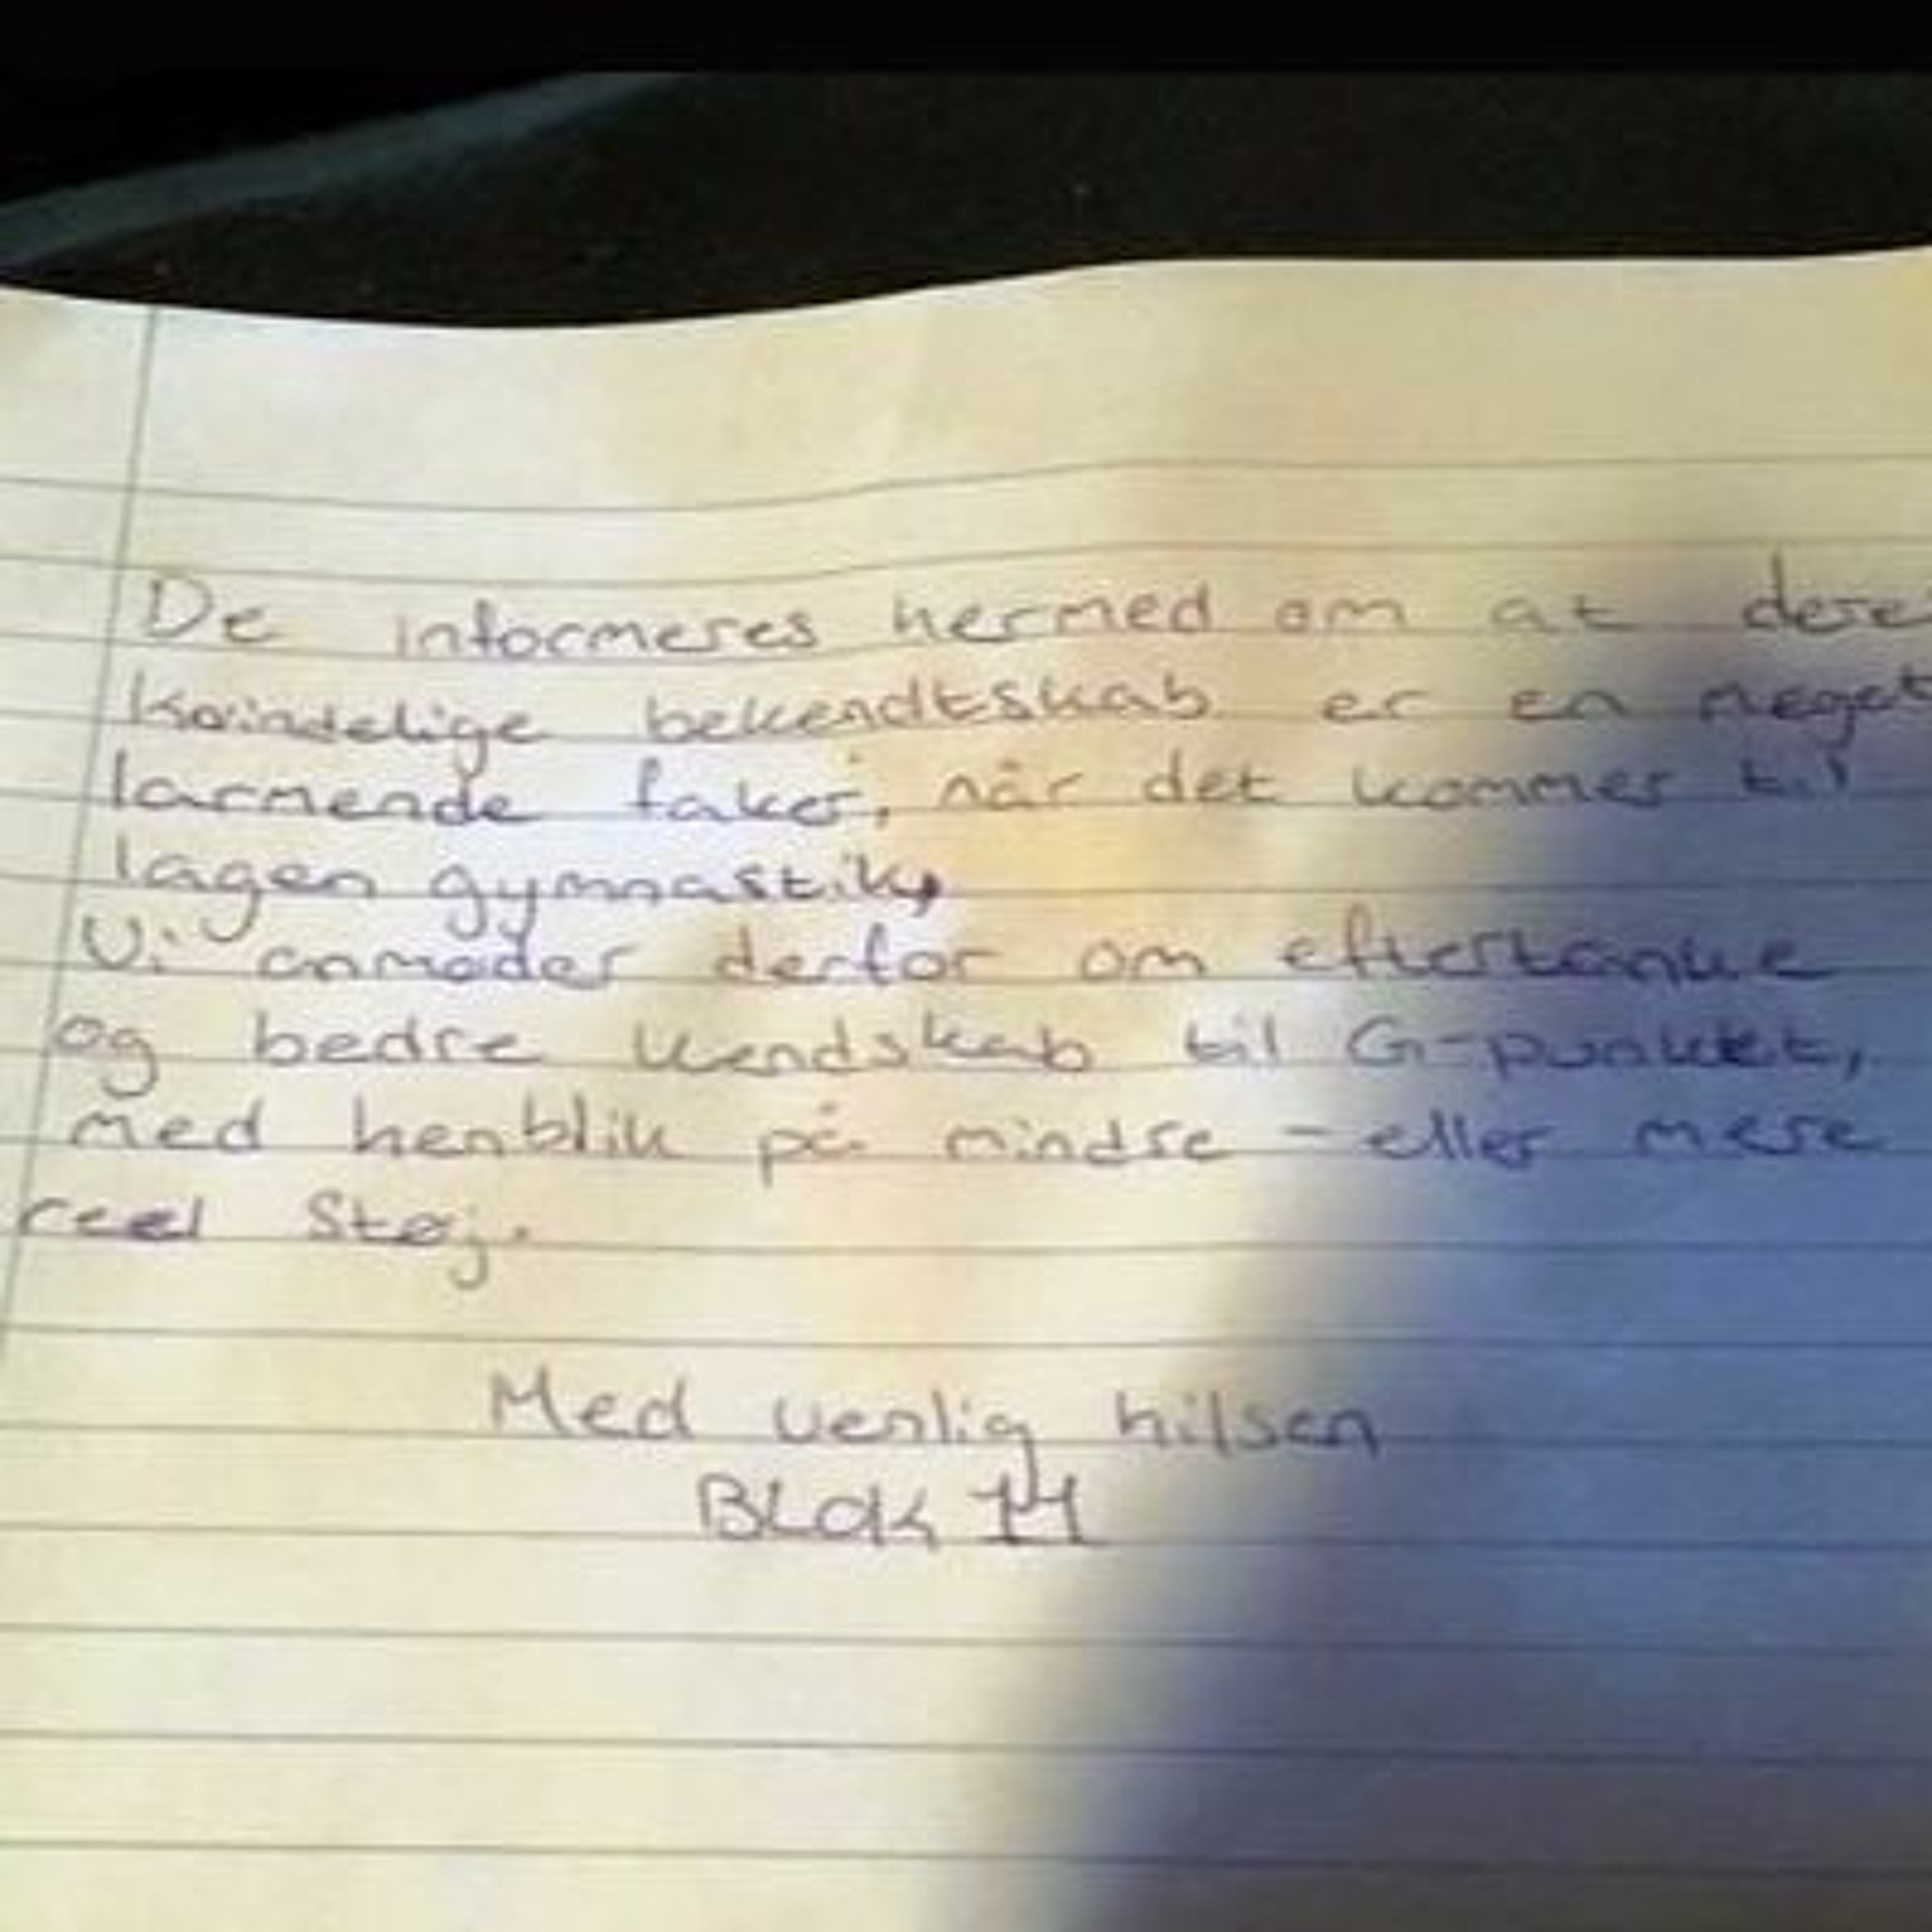 De informeres hermed om at dere
kvindelige bekendtskab er en meget
larmende faker, når det kommer til
lagen gymnastik,
Vi anmoder derfor om eftertanke
og bedre kendskab til G-punktet,
med henblik på mindre - eller mere
reel støj.
Med venlig hilsen
Blok 14